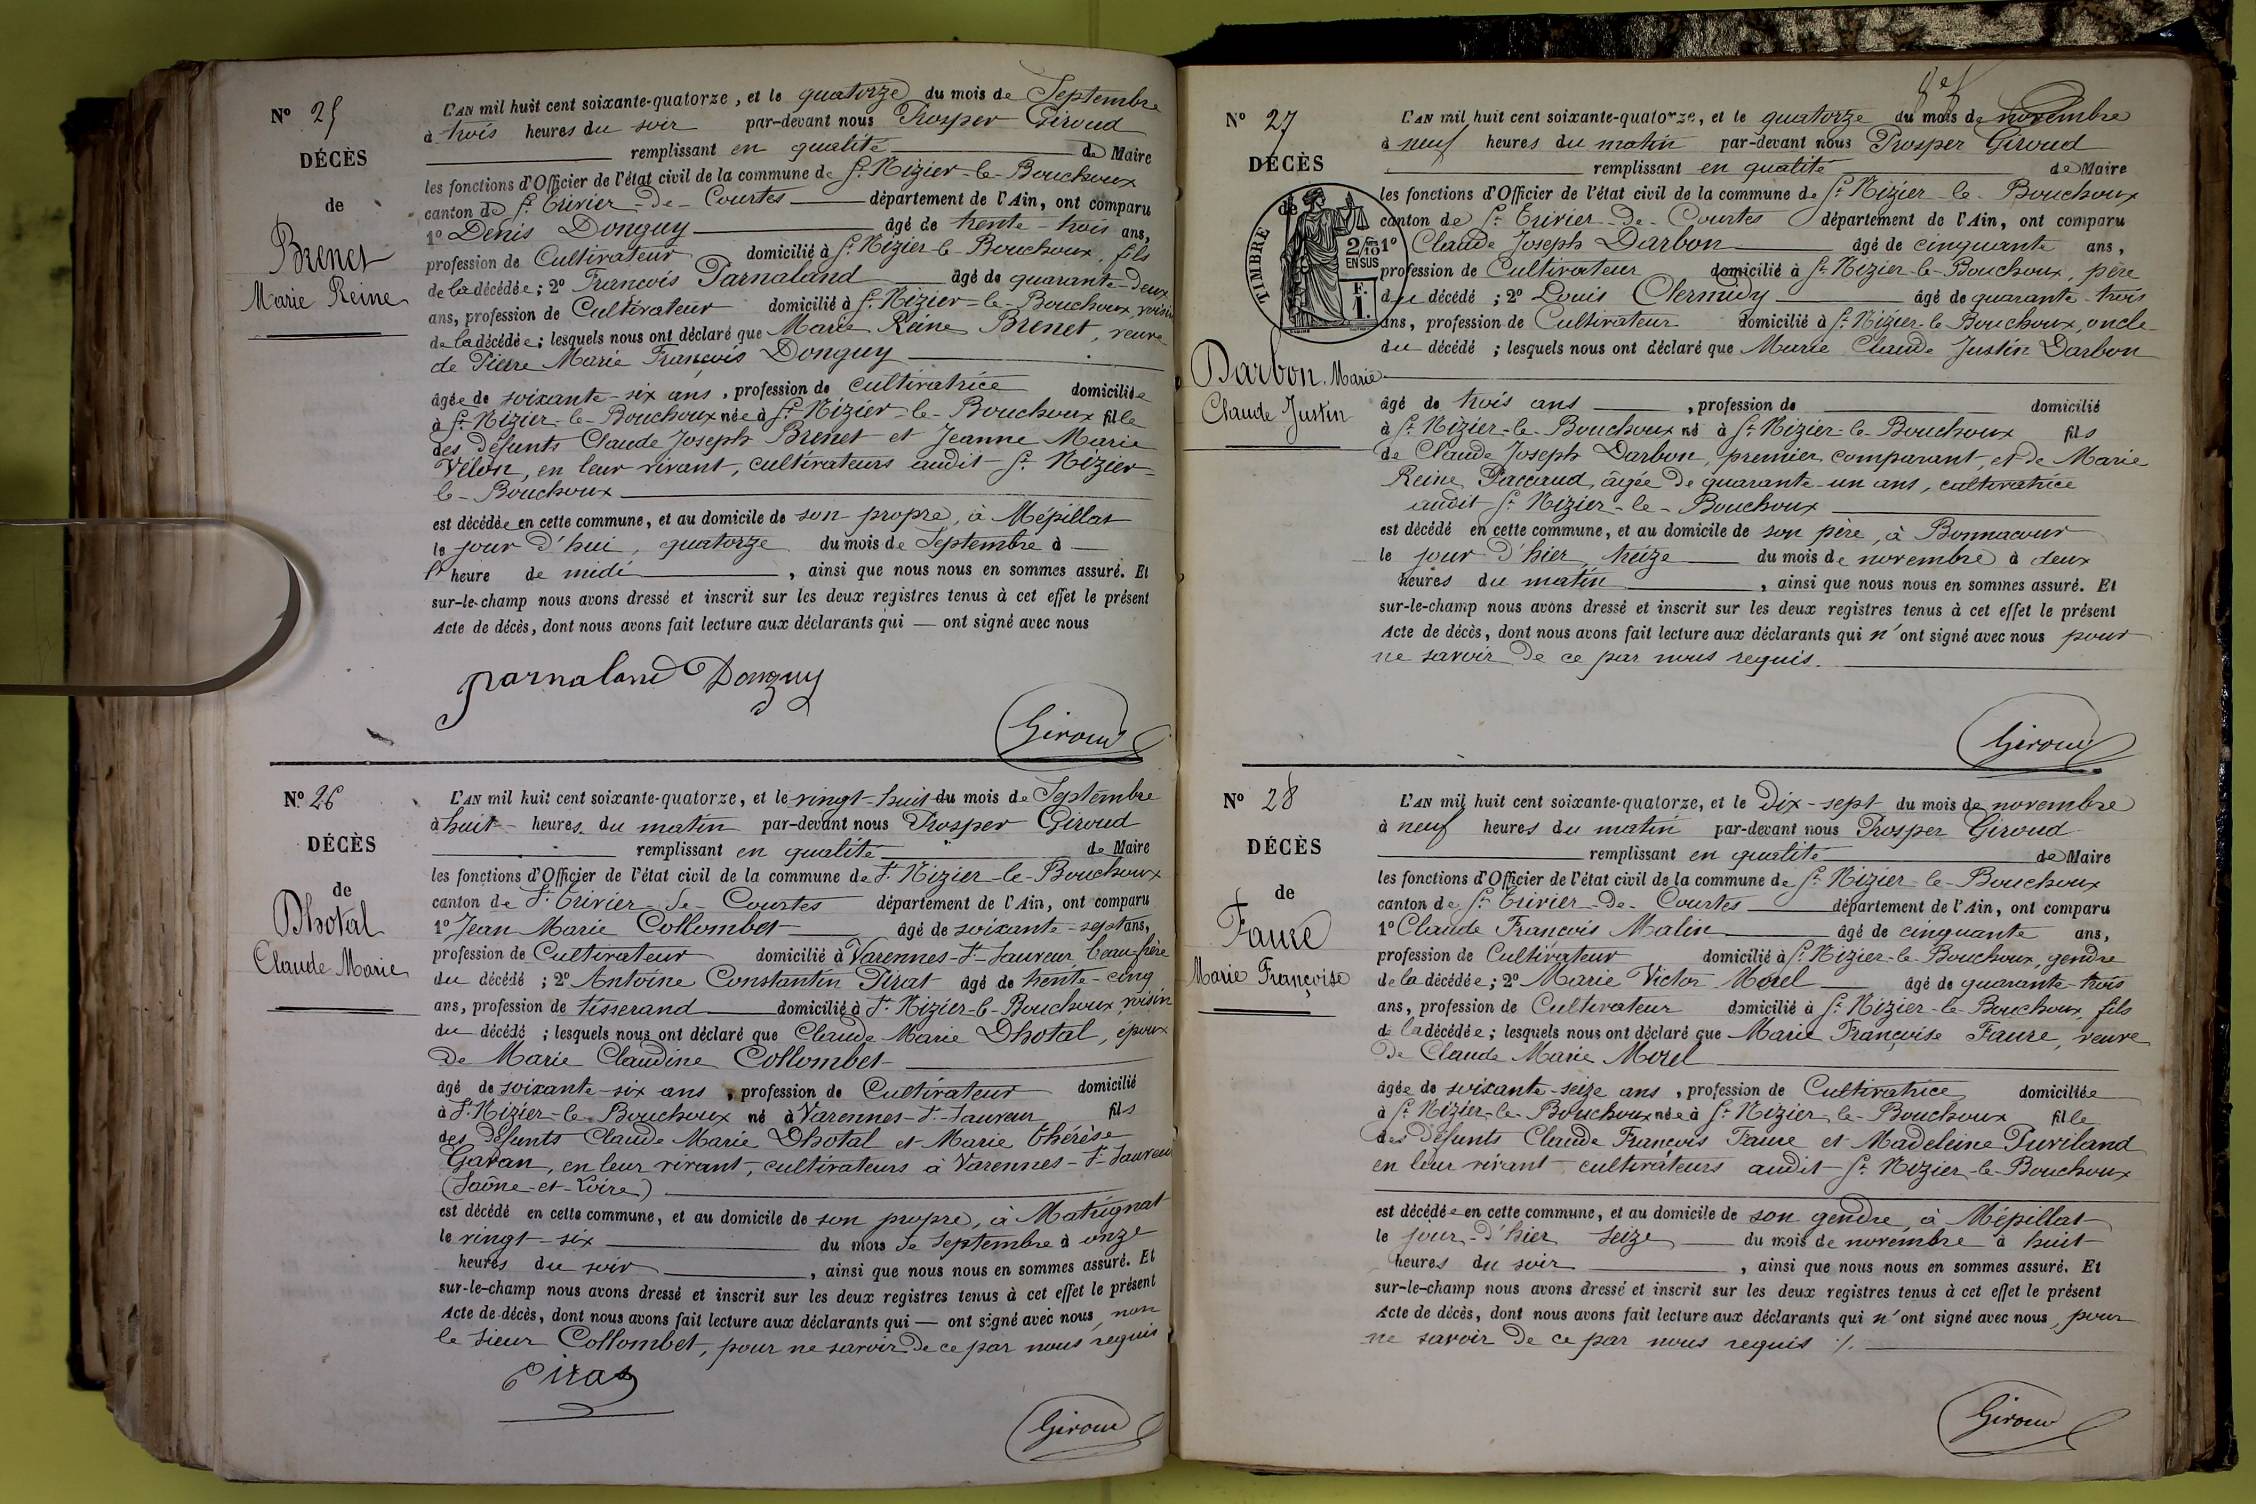 Nº 25
DÉCÈS
de
Brenet
Marie Reine
L'AN mil huit cent soixante-quatorze, et le quatorze du mois de Septembre
à trois heures du soir par-devant nous Prosper Giroud
remplissant en qualité de Maire
les fonctions d'Officier de l'état civil de la commune de St Nizier-le-Bouchoux
canton de St Trivier-de-Courtes département de l'Ain, ont comparu
1º Denis Donguy âgé de trente-trois ans,
profession de Cultivateur domicilié à St Nizier-le-Bouchoux, fils
de la décédée; 2º François Parnaland âgé de quarante-deux
ans, profession de Cultivateur domicilié à St Nizier-le-Bouchoux, voisin
de la décédée; lesquels nous ont déclaré que Marie Reine Brenet, veuve
de Pierre Marie François Donguy
âgée de soixante-six ans, profession de cultivatrice domiciliée
à St Nizier-le-Bouchoux née à St Nizier-le-Bouchoux fille
des défunts Claude Joseph Brenet et Jeanne Marie
Vélon, en leur vivant, cultivateurs audit St Nizier-
le-Bouchoux
est décédée en cette commune, et au domicile de son propre, à Mépillat
le jour d'hui, quatorze du mois de Septembre à
l' heure de midi, ainsi que nous nous en sommes assuré. Et
sur-le-champ nous avons dressé et inscrit sur les deux registres tenus à cet effet le présent
Acte de décès, dont nous avons fait lecture aux déclarants qui — ont signé avec nous
parnaland Donguy
Giroud
Nº 26
DÉCÈS
de
Dhotal
Claude Marie
L'AN mil huit cent soixante-quatorze, et le vingt-huit du mois de Septembre
à huit heures du matin par-devant nous Prosper Giroud
remplissant en qualité de Maire
les fonctions d'Officier de l'état civil de la commune de St Nizier-le-Bouchoux
canton de St Trivier-de-Courtes département de l'Ain, ont comparu
1º Jean Marie Collombet âgé de soixante-sept ans,
profession de Cultivateur domicilié à Varennes-St-Sauveur, beau frère
du décédé; 2º Antoine Constantin Pirat âgé de trente-cinq
ans, profession de tisserand domicilié à St Nizier-le-Bouchoux, voisin
du décédé; lesquels nous ont déclaré que Claude Marie Dhotal, époux
de Marie Claudine Collombet
âgé de soixante-six ans, profession de Cultivateur domicilié
à St Nizier-le-Bouchoux né à Varennes-St-Sauveur fils
des défunts Claude Marie Dhotal et Marie Thérèse
Gavan, en leur vivant, cultivateurs à Varennes-St-Sauveur
(Saône-et-Loire)
est décédé en cette commune, et au domicile de son propre, à Matrignat
le vingt-six du mois de Septembre à onze
heures du soir, ainsi que nous nous en sommes assuré. Et
sur-le-champ nous avons dressé et inscrit sur les deux registres tenus à cet effet le présent
Acte de décès, dont nous avons fait lecture aux déclarants qui — ont signé avec nous, non
le sieur Collombet, pour ne savoir de ce par nous requis
Pirat
Giroud
Nº 27
DÉCÈS
de
TIMBRE
2/10
EN SUS
F.
1.
Darbon, Marie
Claude Justin
L'AN mil huit cent soixante-quatorze, et le quatorze du mois de novembre
à neuf heures du matin par-devant nous Prosper Giroud
remplissant en qualité de Maire
les fonctions d'Officier de l'état civil de la commune de St Nizier-le-Bouchoux
canton de St Trivier-de-Courtes département de l'Ain, ont comparu
1º Claude Joseph Darbon âgé de cinquante ans,
profession de Cultivateur domicilié à St Nizier-le-Bouchoux, père
du décédé; 2º Louis Clermidy âgé de quarante-trois
ans, profession de Cultivateur domicilié à St Nizier-le-Bouchoux, oncle
du décédé; lesquels nous ont déclaré que Marie Claude Justin Darbon
âgé de trois ans, profession de domicilié
à St Nizier-le-Bouchoux né à St Nizier-le-Bouchoux fils
de Claude Joseph Darbon, premier comparant, et de Marie
Reine Paccaud, âgée de quarante-un ans, cultivatrice
audit St Nizier-le-Bouchoux
est décédé en cette commune, et au domicile de son père, à Bonnacour
le jour d'hier, treize du mois de novembre à deux
heures du matin, ainsi que nous nous en sommes assuré. Et
sur-le-champ nous avons dressé et inscrit sur les deux registres tenus à cet effet le présent
Acte de décès, dont nous avons fait lecture aux déclarants qui n'ont signé avec nous pour
ne savoir de ce par nous requis.
Giroud
Nº 28
DÉCÈS
de
Faure
Marie Françoise
L'AN mil huit cent soixante-quatorze, et le dix-sept du mois de novembre
à neuf heures du matin par-devant nous Prosper Giroud
remplissant en qualité de Maire
les fonctions d'Officier de l'état civil de la commune de St Nizier-le-Bouchoux
canton de St Trivier-de-Courtes département de l'Ain, ont comparu
1º Claude François Malin âgé de cinquante ans,
profession de Cultivateur domicilié à St Nizier-le-Bouchoux, gendre
de la décédée; 2º Marie Victor Morel âgé de quarante-trois
ans, profession de Cultivateur domicilié à St Nizier-le-Bouchoux, fils
de la décédée; lesquels nous ont déclaré que Marie Françoise Faure, veuve
de Claude Marie Morel
âgée de soixante-seize ans, profession de Cultivatrice domiciliée
à St Nizier-le-Bouchoux née à St Nizier-le-Bouchoux fille
des défunts Claude François Faure et Madeleine Puviland
en leur vivant cultivateurs audit St Nizier-le-Bouchoux
est décédée en cette commune, et au domicile de son gendre, à Mépillat
le jour-d'hier seize du mois de novembre à huit
heures du soir, ainsi que nous nous en sommes assuré. Et
sur-le-champ nous avons dressé et inscrit sur les deux registres tenus à cet effet le présent
Acte de décès, dont nous avons fait lecture aux déclarants qui n'ont signé avec nous, pour
ne savoir de ce par nous requis ./.
Giroud